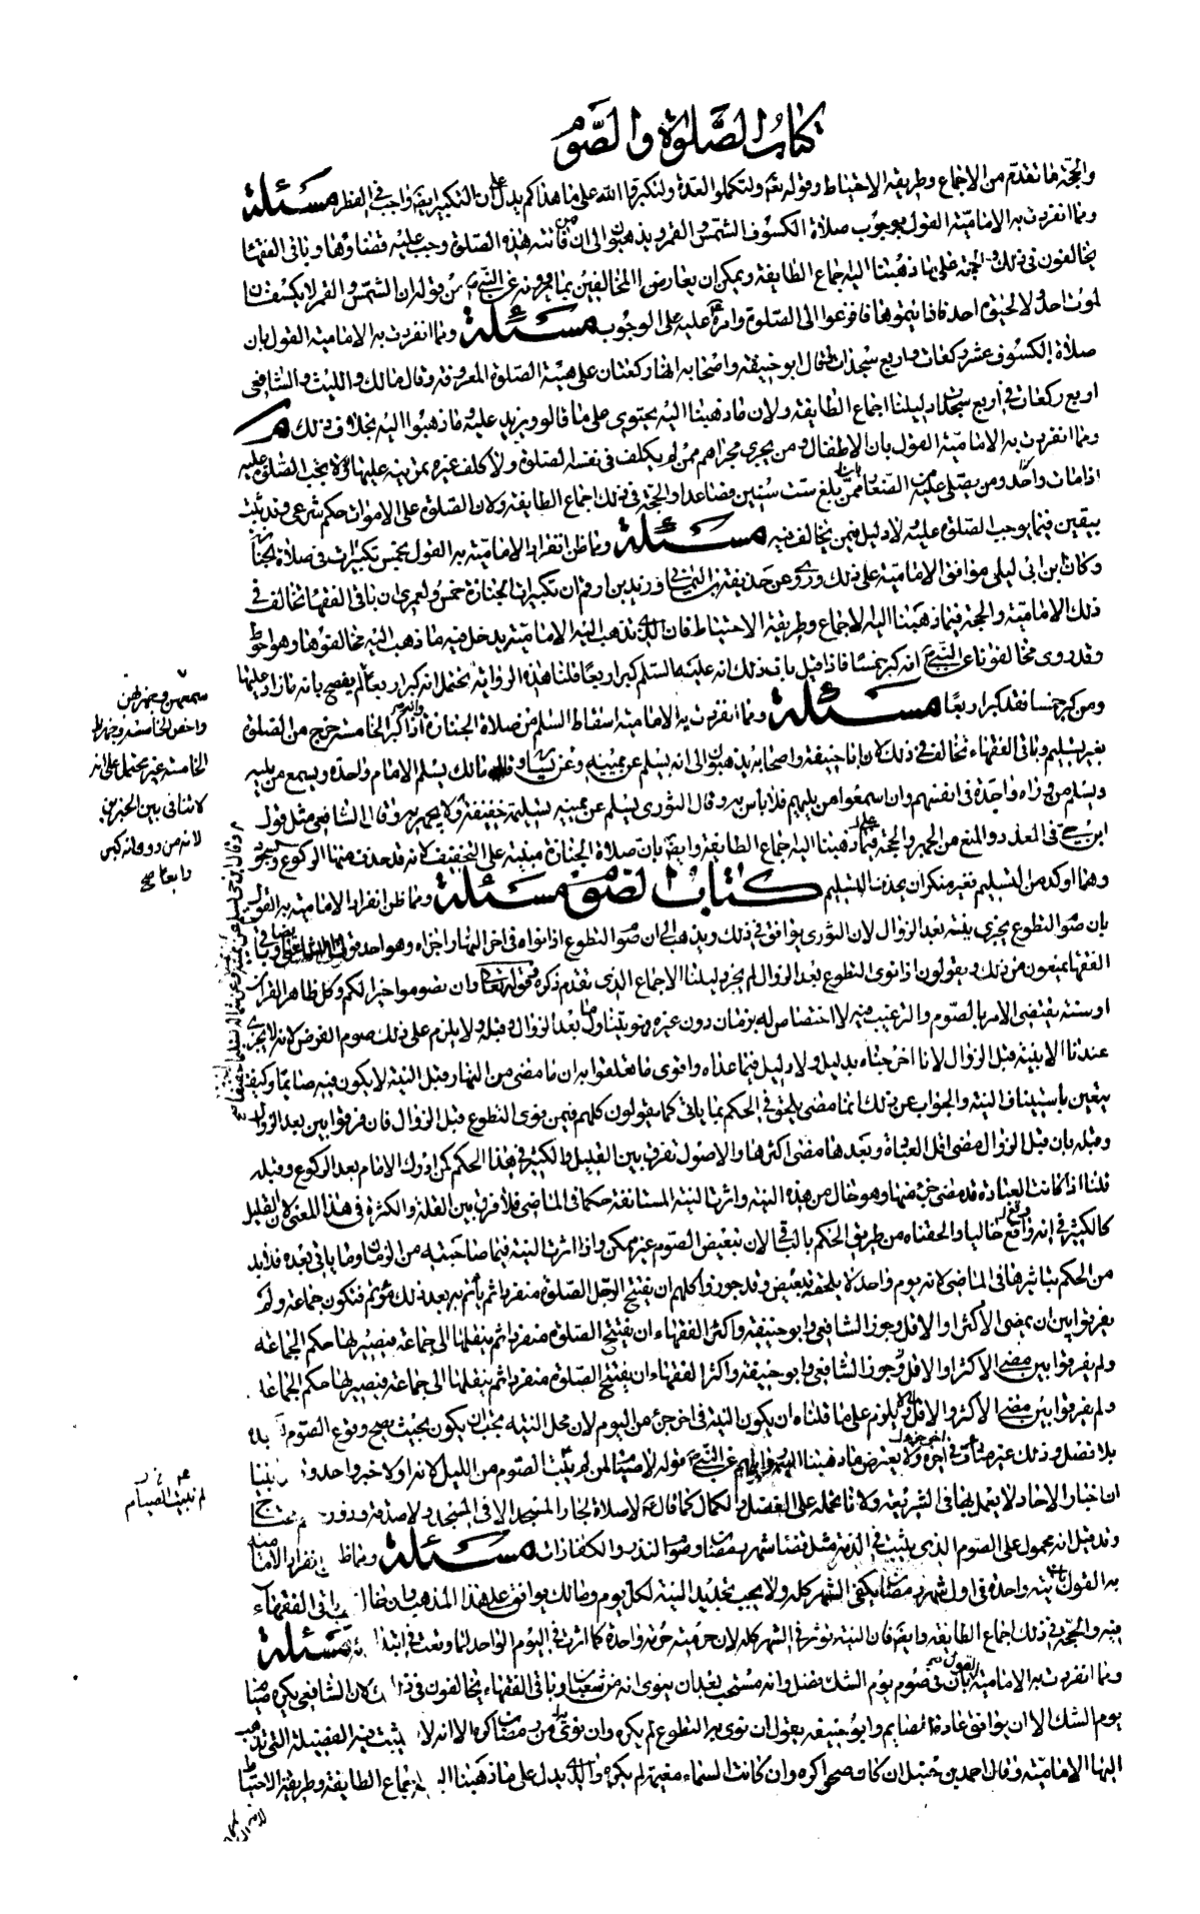 كتاب الصلوة والصوم
والحجة ما تقدم من الاجماع وطريقة الاحتياط وقوله تعم ولتكملوا العدة ولتكبروا الله على ما هداكم يدل على ان التكبير ايضا واجب في الفطر مسئلة
ومما انفردت به الامامية القول بوجوب صلاة الكسوف الشمس والقمر ويذهبون الى ان من فاتته هذه الصلوة وجب عليه قضاؤها وباقي الفقهاء
يخالفون في ذلك والحجة على ما ذهبنا اليه اجماع الطايفة ويمكن ان يعارض المخالفين بما يروونه عن النبي من قوله ان الشمس والقمر لا يكسفان
لموت احد ولا لحيوة احد فاذا رايتموها فافزعوا الى الصلوة وامره عليه على الوجوب مسئلة ومما انفردت به الامامية القول بان
صلاة الكسوف عشر ركعات واربع سجدات وقال ابو حنيفة واصحابه انها ركعتان على هيئة الصلوة المعروفة وقال مالك والليث والشافعي
اربع ركعات في اربع سجدات دليلنا اجماع الطايفة ولان ما ذهبنا اليه يحتوي على ما قالوه ويزيد عليه وما ذهبوا اليه بخلاف ذلك
ومما انفردت به الامامية القول بان الاطفال ومن يجري مجراهم ممن لم يكلف في نفسه الصلوة ولا كلف غيره تمرينه عليها لا يجب الصلوة عليه
اذا مات واحد ومن يصلى عليه من الصغار ممن بلغ ست سنين فصاعدا والحجة في ذلك اجماع الطايفة ولان الصلوة على الاموات حكم شرعي وقد ثبت
بيقين فيما يوجب الصلوة عليه ولا دليل فيمن يخالف فيه مسئلة ومما ظن انفراد الامامية به القول بخمس تكبيرات في صلاة الجنائز
وكان ابن ابي ليلى موافق الامامية على ذلك وروى عن حذيفة بن اليماني وزيد بن ارقم ان تكبيرات الجنازة خمس ولعمري ان باقي الفقهاء يخالف في
ذلك الامامية والحجة فيما ذهبنا اليه الاجماع وطريقة الاحتياط فان الذي تذهب اليه الامامية يدخل فيه ما ذهب اليه مخالفوها وهو احوط
وقد روى مخالفونا عن النبي انه كبر خمسا فاذا قيل بازاء ذلك انه عليه السلم كبر اربعا قلنا هذه الرواية يحتمل انه كبر اربعا لم يفصح بانه ما زاد عليها
ومن كبر خمسا فقد كبر اربعا مسئلة ومما انفردت به الامامية اسقاط السلم من صلاة الجنازة وانه اذا كبر الخامسة خرج من الصلوة
بغير تسليم وباقي الفقهاء تخالف في ذلك لان ابا حنيفة واصحابه يذهبون الى انه يسلم عن يمينه وعن يساره وقال مالك يسلم الامام واحدة ويسمع من يليه
ويسلم من وراه واحدة في انفسهم وان اسمعوا من يليهم فلا باس به وقال الثوري يسلم عن يمينه تسليمة خفيفة ولا يجهر به وقال الشافعي مثل قول
ابن حي في العدد والمنع من الجهر والحجة على ما ذهبنا اليه اجماع الطايفة وايضا بان صلاة الجنازة مبنية على التخفيف لانه قد حذف منها الركوع والسجود
وهما اوكد من التسليم فغير منكر ان يحذف التسليم كتاب الصوم مسئلة ومما ظن انفراد الامامية به القول
بان صوم التطوع يجزي بنية بعد الزوال لان الثوري يوافق في ذلك ويذهب الى ان صوم التطوع اذا نواه في اخر النهار اجزاه وهو احد قولي الشافعي وباقي
الفقها يمنعون من ذلك ويقولون اذا نوى التطوع بعد الزوال لم يجزه دليلنا الاجماع الذي تقدم ذكره وقوله تعالى وان تصوموا خير لكم وكل ظاهر القران
او سنة يقتضي الامر بالصوم والترغيب فيه لا اختصاص له بزمان دون غيره فهو يتناول ما بعد الزوال وقبله ولا يلزم على ذلك صوم الفرض لانه لا يجزي
عندنا الا بنية قبل الزوال لانا اخرجناه بدليل ولا دليل فيما عداه واقوى ما تعلقوا به ان ما مضى من النهار وقبل النية لا يكون فيه صايما وكيف
يتغير باستيناف النية والجواب عن ذلك ان ما مضى يلحق في الحكم بما ياتي كما يقولون كلهم فيمن نوى التطوع قبل الزوال فان فرقوا بين بعد الزوال
وقبله بان قبل الزوال مضى اقل العبادة وبعدها مضى اكثرها والاصول تفرق بين القليل والكثير في هذا الحكم كمن ادرك الامام بعد الركوع وقبله
قلنا اذا كانت العبادة قد مضى جزء منها وهو خال من هذه النية واثرت النية المستانفة حكما في الماضي فلا فرق بين القلة والكثرة في هذا المعنى لان القليل
كالكثير في انه وقع خاليا والحقناه من طريق الحكم بالباقي لان تبعيض الصوم غير ممكن واذا اثرت النية فيما صاحبته من الزمان وما ياتي بعده فلابد
من الحكم بتاثيرها في الماضي لانه يوم واحد لا يلحقه تبعيض وقد جوزوا كلهم ان يفتتح الرجل الصلوة منفردا ثم ياتم به بعد ذلك مؤتم فتكون جماعة ولم
يفرقوا بين ان يمضي الاكثر او الاقل وجوز الشافعي وابو حنيفة واكثر الفقهاء ان يفتتح الصلوة منفردا ثم ينقلها الى جماعة فيصير لها حكم الجماعة
ولم يفرقوا بين مضي الاكثر او الاقل وجوز الشافعي وابو حنيفة واكثر الفقهاء ان يفتتح الصلوة منفردا ثم ينقلها الى جماعة فيصير لها حكم الجماعة
ولم يفرقوا بين مضي الاكثر والاقل ولا يلزم على ما قلناه ان يكون النية في اخر جزء من اليوم لان محل النية يجب ان يكون بحيث يصح وقوع الصوم
بلا فصل وذلك غير متات في اخر جزء ولا يعترض ما ذهبنا اليه عن النبي قوله لا صيام لمن لم يبيت الصوم من الليل لانه اولا خبر واحد وقد بينا
ان اخبار الاحاد لا يعمل بها في الشريعة ولانا نحمله على الفضل والكمال كما قال لا صلاة لجار المسجد الا في المسجد ولا صدقة وذو رحم محتاج
وقد قيل انه محمول على الصوم الذي يثبت في الذمة مثل قضا شهر رمضان وصوم النذر والكفارات مسئلة ومما ظن انفراد الامامية
به القول بان نية واحدة في اول شهر رمضان يكفي الشهر كله ولا يجب تجديد النية لكل يوم ومالك يوافق على هذا المذهب وان خالف باقي الفقهاء
فيه والحجة في ذلك اجماع الطايفة وايضا فان النية توثر في الشهر كله لان حرمته حرمة واحدة كما اثرت في اليوم الواحد لما وقعت في ابتدائه مسئلة
ومما انفردت به الامامية القول بان في صوم يوم الشك فضل وانه مستحب بعد ان ينوي انه من شعبان وباقي الفقهاء يخالفون في ذلك لان الشافعي يكره صيام
يوم الشك الا ان يوافق عادة لصايم وابو حنيفة يقول ان نوى به التطوع لم يكره وان نوى به من رمضان كره الا انه لا يثبت فيه الفضيلة التي تذهب
اليها الامامية وقال احمد بن حنبل ان كان صحوا كره وان كانت السماء مغيمة لم يكره والذي يدل على ما ذهبنا اليه اجماع الطايفة وطريقة الاحتياط
واخص الخامسة
الخامسة غير محتمل على انه
لا تنافي بين الخبرين
لانه من روى انه كبر
اربعا صح
لم يبيت الصيام